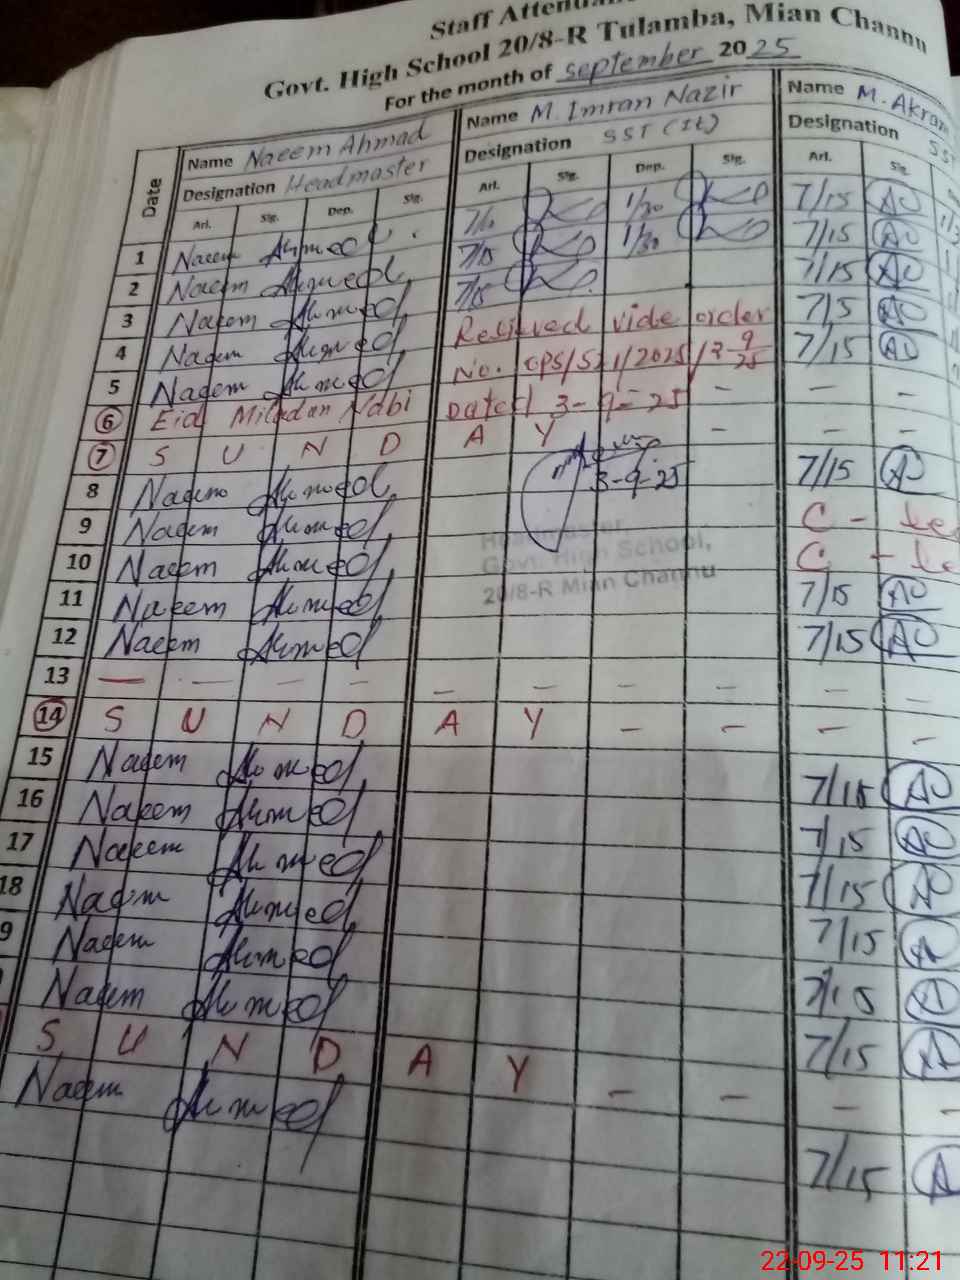 Staff Attendan
Govt. High School 20/8-R Tulamba, Mian Channu
For the month of September 2025
Date
Name Naeem Ahmad
Designation Headmaster
Arl. Sig. Dep. Sig.
Name M. Imran Nazir
Designation SST (It)
Arl. Sig. Dep. Sig.
Name M. Akram
Designation SST
Arl. Sig.
1 Naeem Ahmed 1/30 7/15
2 Naeem Ahmed 7/15 1/30 7/15
3 Naeem Ahmed 7/15 7/15
4 Naeem Ahmed Relieved vide order 7/15
5 Naeem Ahmed No. 2025 7/15
6 Eid Miladan Nabi Dated 3-9-25 - - -
7 S U N D A Y - - -
8 Naeem Ahmed 3-9-25 7/15
9 Naeem Ahmed C -
10 Naeem Ahmed C -
Headmaster
Govt. High School,
20/8-R Mian Channu
11 Naeem Ahmed 7/15
12 Naeem Ahmed 7/15
13 - - - - - - - - - -
14 S U N D A Y - - - -
15 Naeem Ahmed 7/15
16 Naeem Ahmed 7/15
17 Naeem Ahmed 7/15
18 Naeem Ahmed 7/15
9 Naeem Ahmed 7/15
Naeem Ahmed 7/15
S U N D A Y - - - -
Naeem Ahmed 7/15
22-09-25 11:21